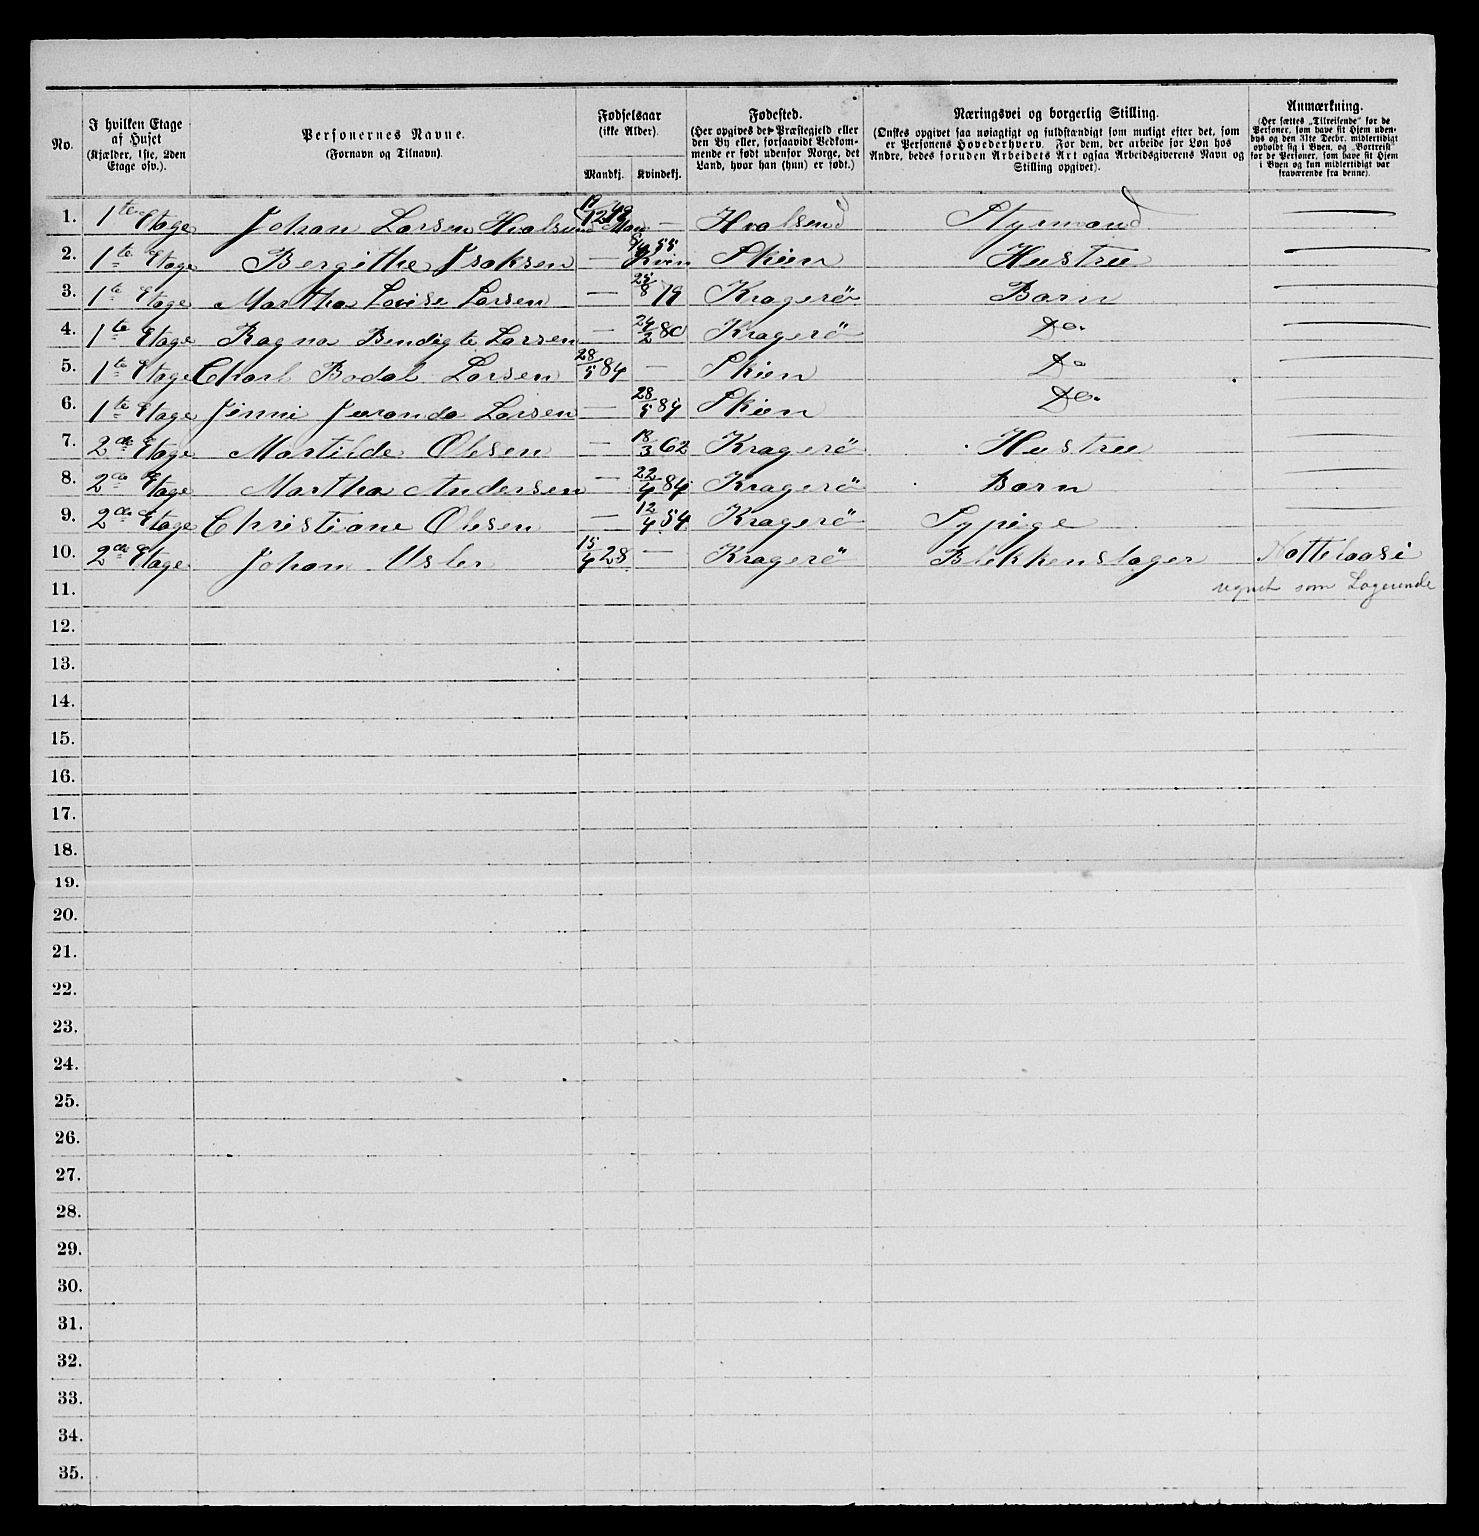 No.
I hvilken Etage af Huset (Kjælder, 1ste, 2den Etage osv.).
Personernes Navne. (Fornavn og Tilnavn).
Fødselsaar (ikke Alder).
Mandkj.
Kvindekj.
Fødested. (Her opgives det Præstegjeld eller den By eller, forsaavidt Vedkommende er født udenfor Norge, det Land, hvor han (hun) er født.)
Næringsvei og borgerlig Stilling. (Ønskes opgivet saa nøiagtigt og fuldstændigt som muligt efter det, som er Personens Hovederhverv. For dem, der arbeide for Løn hos Andre, bedes foruden Arbeidets Art ogsaa Arbeidsgiverens Navn og Stilling opgivet).
Anmærkning. (Her sættes „Tilreisende" for de Personer, som have sit Hjem udenbys og den 31te Decbr. midlertidigt opholdt sig i Byen, og „Bortreist" for de Personer, som have sit Hjem i Byen og kun midlertidigt var fraværende fra denne).
1. 1te Etage Johan Larsen Hvalsund — Hvalsund Styrmand —
2. 1te Etage Bergithe Isaksen — 55 Kvin Skien Hustru —
3. 1te Etage Martha Lovise Larsen — 25/8 79 Kragerö Barn —
4. 1te Etage Ragna Bendigte Larsen — 24/2 80 Kragerö Do. —
5. 1te Etage Charl Bodal Larsen 28/5 84 — Skien Do —
6. 1te Etage Jenni Larsen — 28/5 84 Skien Do. —
7. 2den Etage Martilde Olsen — 18/3 62 Kragerö Hustru —
8. 2den Etage Martha Andersen — 22/4 84 Kragerö Barn —
9. 2den Etage Christiane Olsen — 12/4 54 Kragerö Sypige —
10. 2den Etage Johan Usler 15/4 28 — Kragerö Blekkenslager Nattelaasi
11. regnet som Logerende
12.
13.
14.
15.
16.
17.
18.
19.
20.
21.
22.
23.
24.
25.
26.
27.
28.
29.
30.
31.
32.
33.
34.
35.